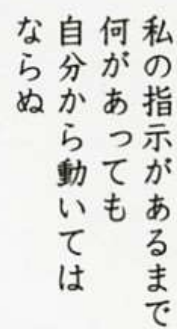 私の指示があるまで
何があっても
自分から動いては
ならぬ